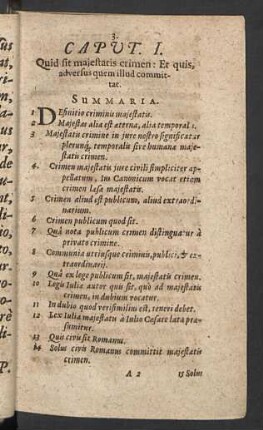 3.
CAPUT. I.
Quid sit majestatis crimen: Et quis,
adversus quem illud commit-
tat.
SUMMARIA.
1 DEfinitio criminis majestatis.
2 Majestas alia est æterna, alia temporalis.
3 Majestatis crimine in jure nostro significatur
plerunq; temporalis sive humanæ maje-
statis crimen.
4. Crimen majestatis jure civili simpliciter ap-
pellatum, Jus Canonicum vocat etiam
crimen læsæ majestatis.
5 Crimen aliud est publicum, aliud extraordi-
narium.
6 Crimen publicum quod sit.
7 Quâ nota publicum crimen distinguatur à
privato crimine.
8 Communia utriusque criminis, publici, & ex-
traordinarii.
9 Quâ ex lege publicum sit, majestatis crimen.
10 Legis Juliæ autor quis sit, quò ad majestatis
crimen, in dubium vocatur.
11 In dubio quod verisimilius est, teneri debet.
12 Lex Julia majestatis à Julio Cæsare lata præ-
sumitur.
13 Quis civis sit Romanus.
14 Solus civis Romanus committit majestatis
crimen.
A 2
15 Solus